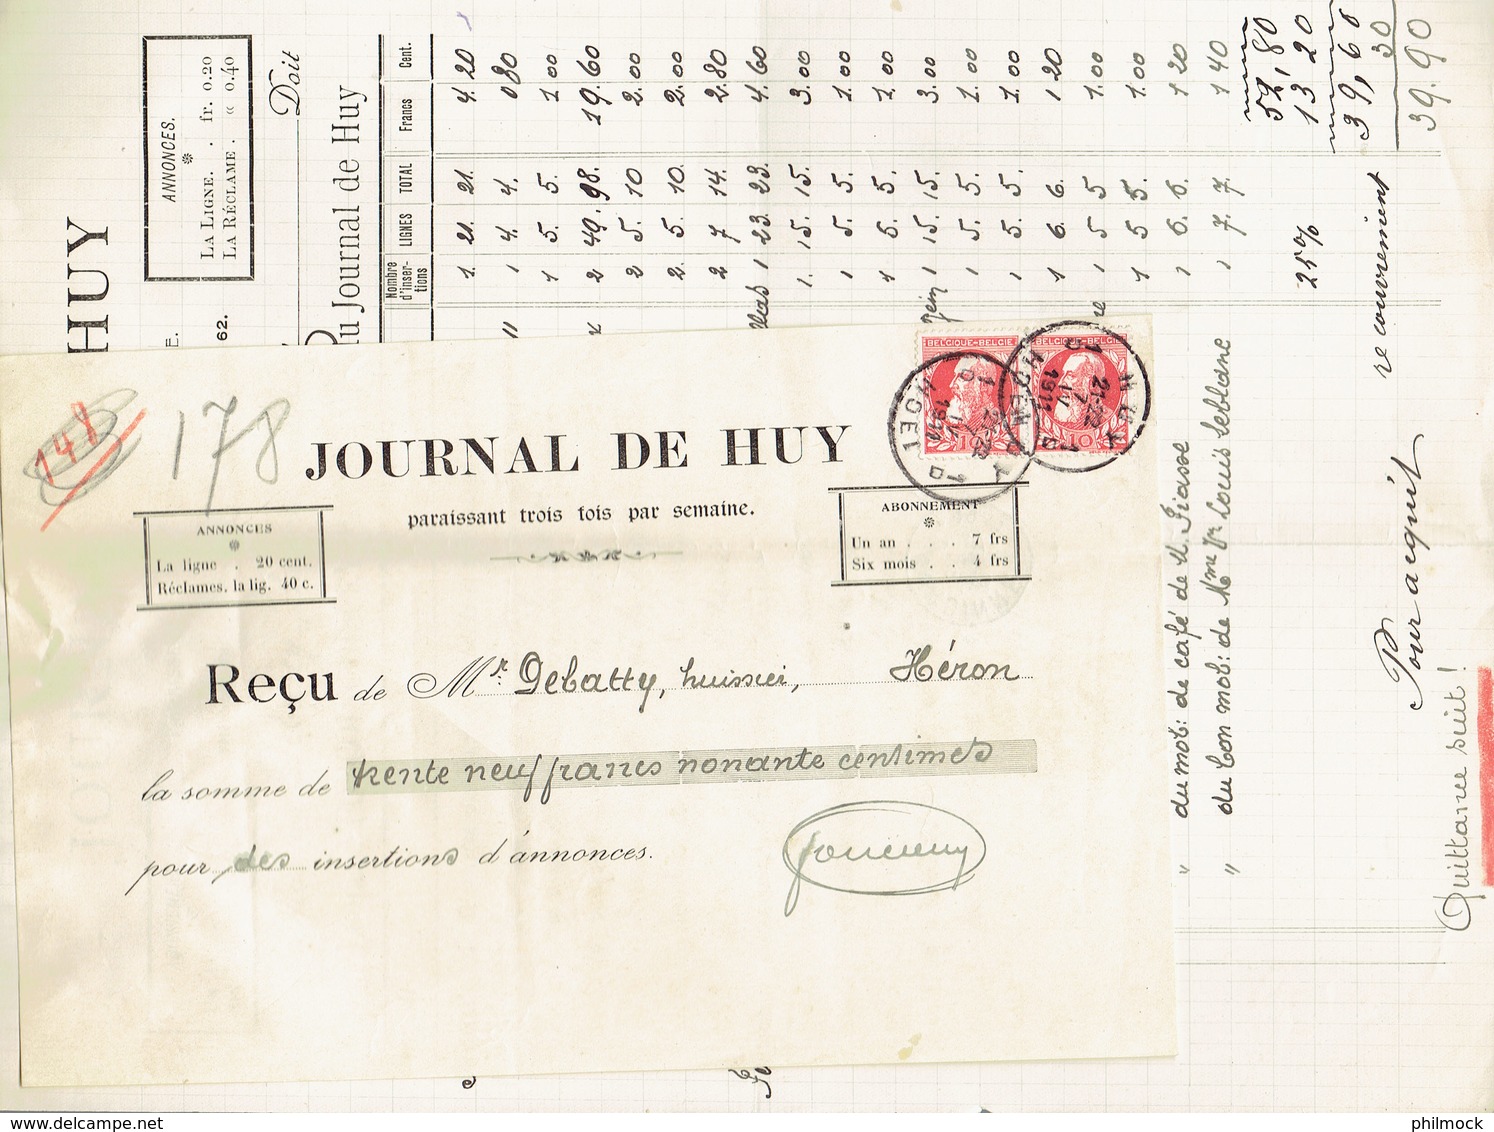 JOURNAL DE HUY
paraissant trois fois par semaine.
147
178
ANNONCES
La ligne . 20 cent.
Réclames, la lig. 40 c.
ABONNEMENT
Un an . . . 7 frs
Six mois . . 4 frs
BELGIQUE-BELGIE
BELGIQUE-BELGIE
10
10
HUY
1911
Reçu de Mr. Debatty, huissier, Héron
la somme de trente neuf francs nonante centimes
pour des insertions d'annonces.
HUY
62.
ANNONCES.
LA LIGNE. . fr. 0.20
LA RÉCLAME . « 0.40
Doit
Du Journal de Huy
Nombre d'inser-tions LIGNES TOTAL Francs Cent.
1. 21. 21. 4. 20
1 4. 4. 0 80
1 5. 5. 1. 00
2 49. 98. 19. 60
2 5. 10 2. 00
2. 5. 10. 2. 00
2 7 14. 2. 80
1 23. 23. 4. 60
1. 15. 15. 3. 00
1 5. 5. 1. 00
1 5. 5. 1. 00
1 15. 15. 3. 00
1 5. 5. 1. 00
1 5. 5. 1. 00
1 6. 6. 1 20
1 5 5 1. 00
1 5 5. 1. 00
" du mob: de café de M. Piasse 1 6. 6. 1 20
" du bon mob: de Mme Vve Louis Leblanc 1 7. 7. 1 40
52, 80
25% 13 20
39, 60
recouvrement 30
39. 90
Pour acquit
Quittance suit!
philmock